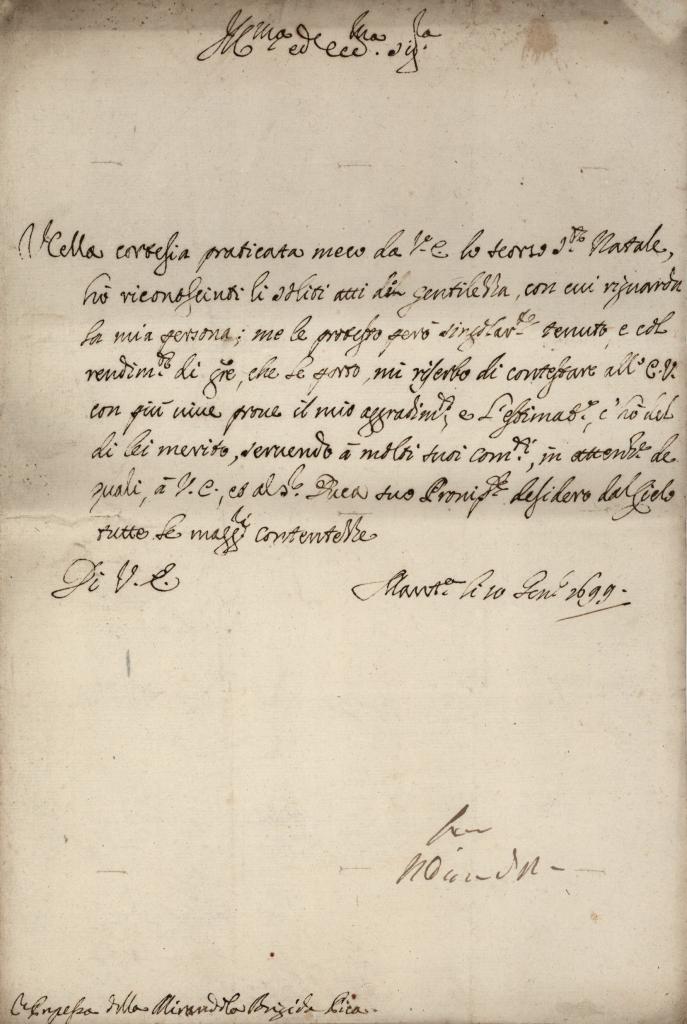 Ill.ma ed ecc.ma sig.ra
Nella cortesia praticata meco da V. E. lo scorso S.to Natale,
hò riconosciuti li soliti atti di gentilezza, con cui riguarda
la mia persona; me le protesto però singolar.te tenuto, e col
rendim.to di gre, che le porto, mi riserbo di contestare all' E. V.
con più vive prove il mio aggradim.to, e l'estimat.e, c'hò del
di lei merito, servendo à molti suoi com.di, in attenz.e de
quali, à V. E., ed al S.r Duca suo Pronip.te desidero dal Cielo
tutte le magg.ri contentezze
Di V. E.
Mant.a li 10 Gen.o 1699.
Pnpessa della Mirandola Brigida Pica.